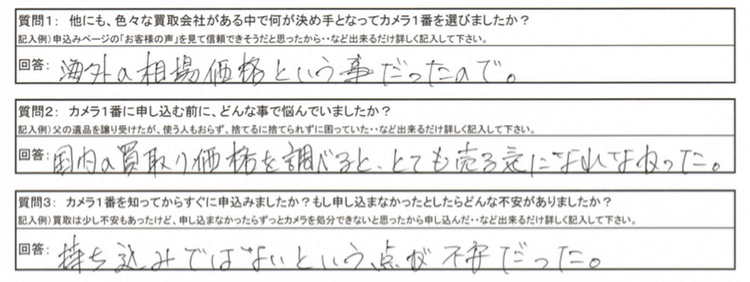 質問1: 他にも、色々な買取会社がある中で何が決め手となってカメラ1番を選びましたか?
記入例)申込みページの「お客様の声」を見て信頼できそうだと思ったから・・など出来るだけ詳しく記入して下さい。
回答: 海外の相場価格という事だったので。
質問2: カメラ1番に申し込む前に、どんな事で悩んでいましたか?
記入例)父の遺品を譲り受けたが、使う人もおらず、捨てるに捨てられずに困っていた・・など出来るだけ詳しく記入して下さい。
回答: 国内の買取り価格を調べると、とても売る気になれなかった。
質問3: カメラ1番を知ってからすぐに申込みましたか?もし申し込まなかったとしたらどんな不安がありましたか?
記入例)買取は少し不安もあったけど、申し込まなかったらずっとカメラを処分できないと思ったから申し込んだ・・など出来るだけ詳しく記入して下さい。
回答: 持ち込みではないという点が不安だった。